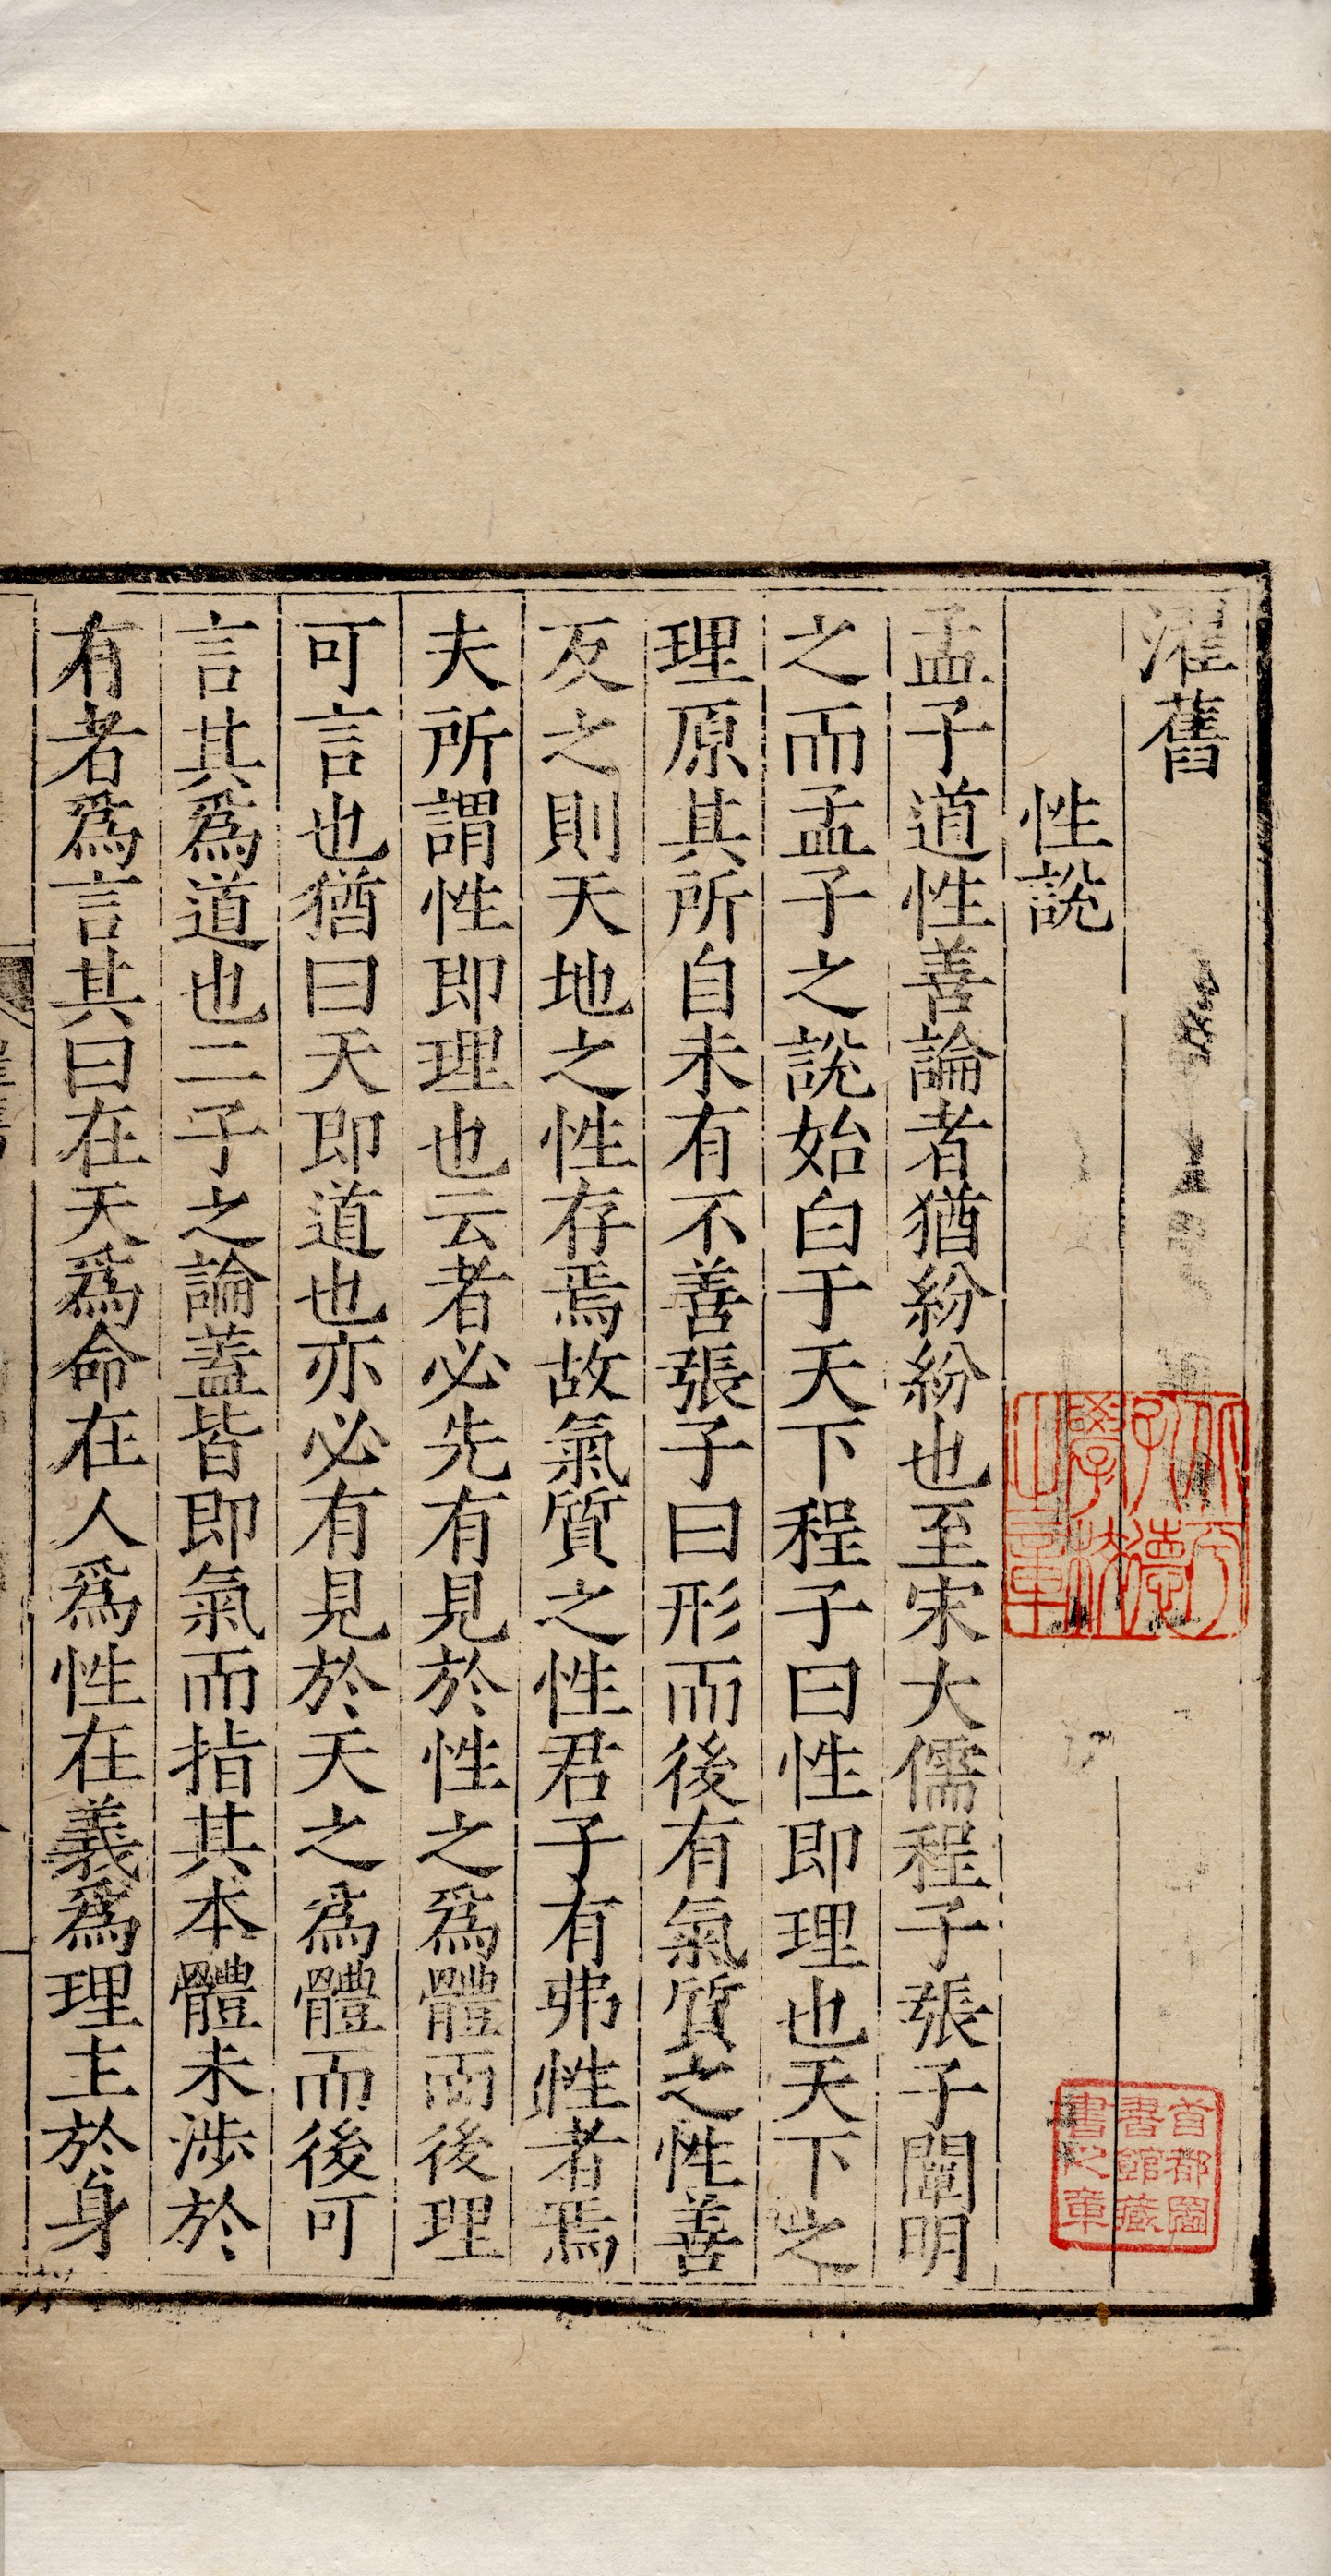 濯舊
性說
孟子道性善論者猶紛紛也至宋大儒程子張子闡明
之而孟子之說始白于天下程子曰性即理也天下之
理原其所自未有不善張子曰形而後有氣質之性善
反之則天地之性存焉故氣質之性君子有弗性者焉
夫所謂性即理也云者必先有見於性之爲體而後理
可言也猶曰天即道也亦必有見於天之爲體而後可
言其爲道也二子之論蓋皆即氣而指其本體未涉於
有者爲言其曰在天爲命在人爲性在義爲理主於身
首都圖
書館藏
書之章